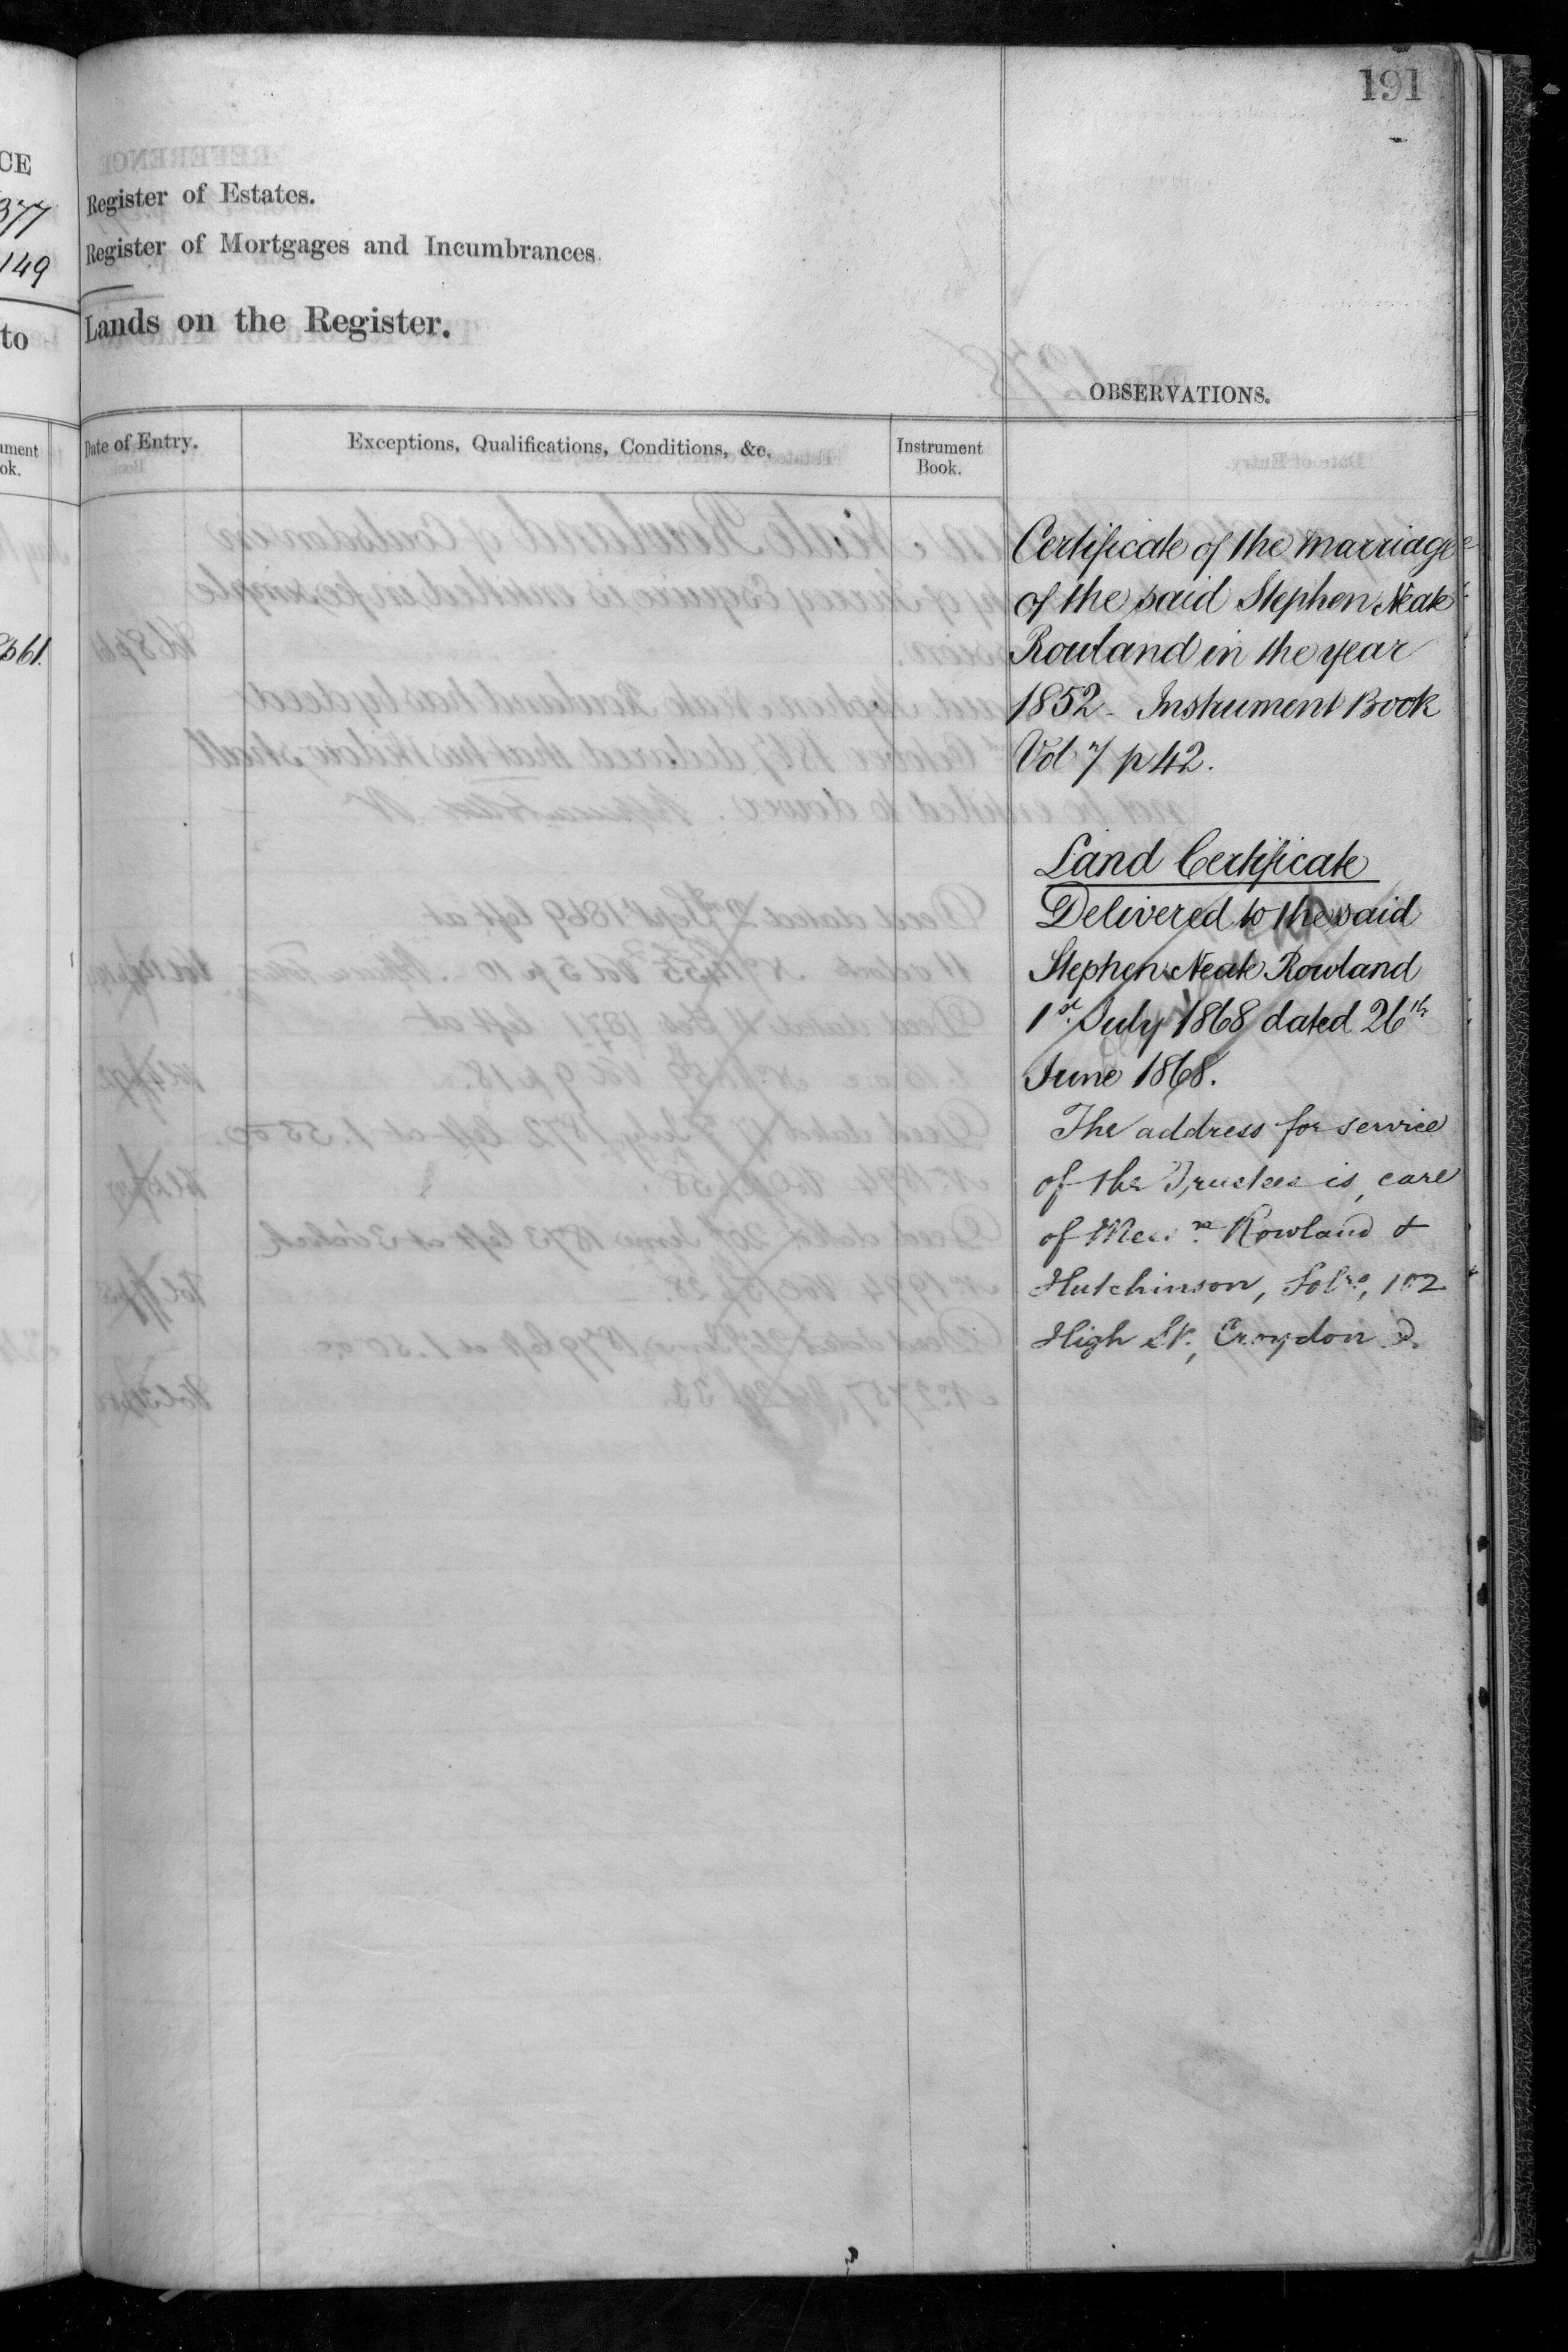 191
CE
377
149
to
ument
ok.
p61.
Register of Estates.
Register of Mortgages and Incumbrances.
Lands on the Register.
OBSERVATIONS.
Date of Entry.
Exceptions, Qualifications, Conditions, &c.
Instrument
Book.
Certificate of the marriage
of the said Stephen Neate
Rowland in the year
1852 - Instrument Book
Vol 7 p 42.
Land Certificate
Delivered to the said
Stephen Neate Rowland
1st July 1868 dated 26th
June 1868.
The address for service
of the Trustees is, care
of Messrs Rowland &
Hutchinson, Solrs, 102
High St., Croydon